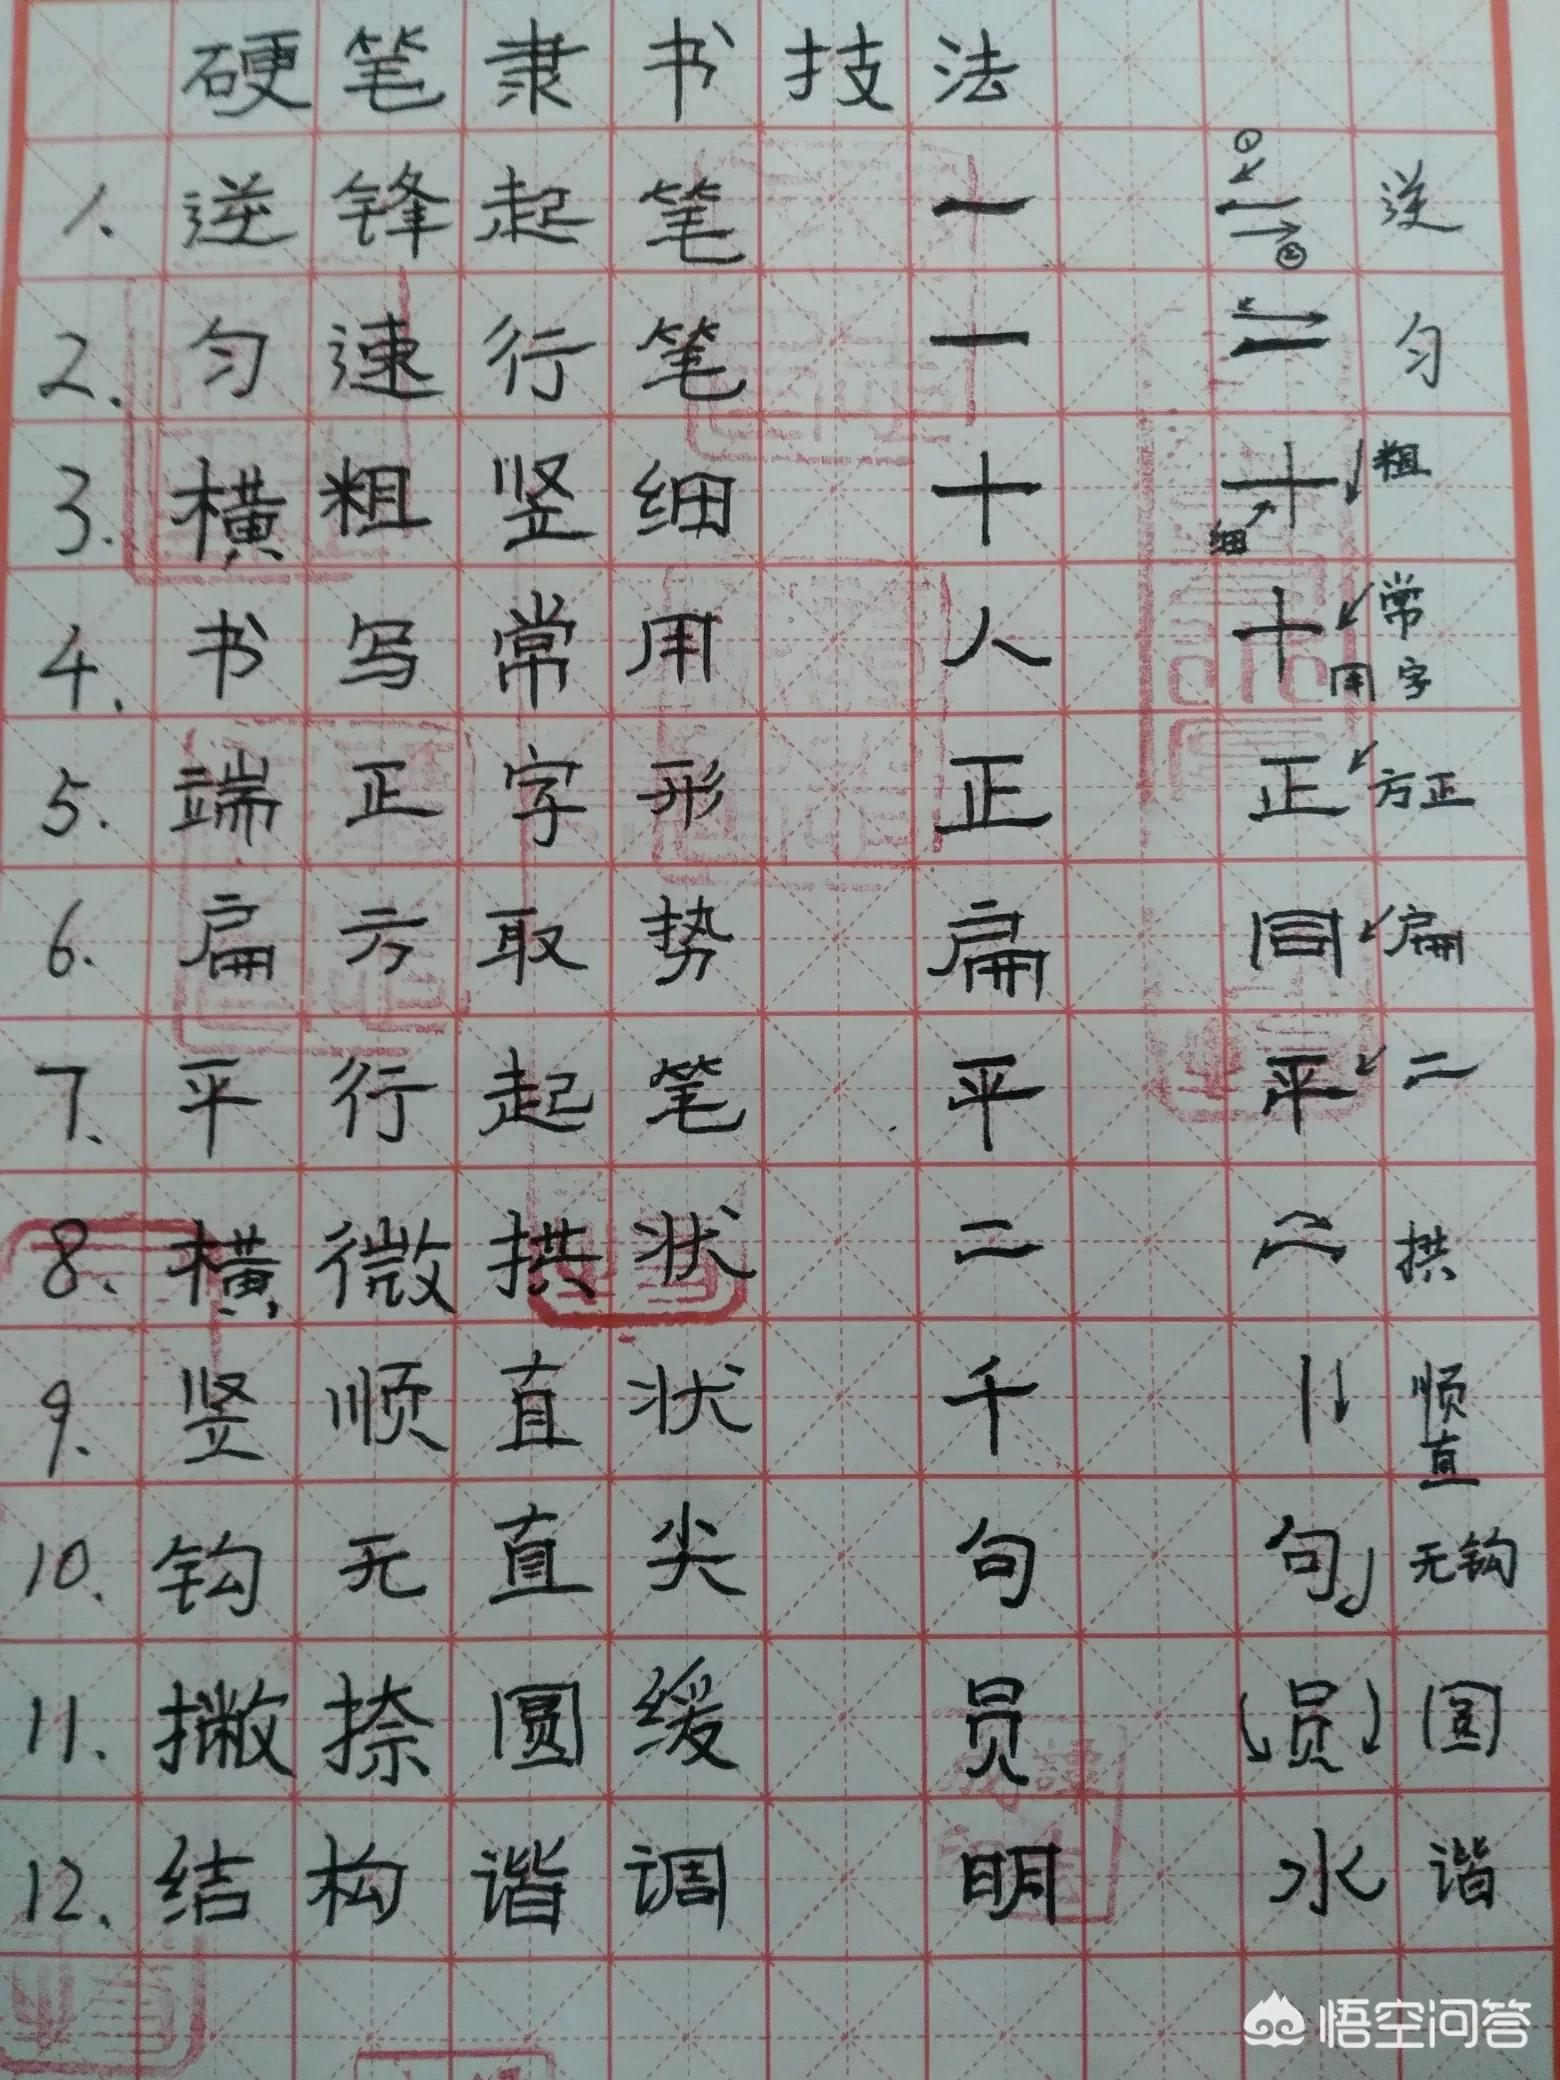 硬笔隶书技法
1. 逆锋起笔 一 ① ② 逆
2. 匀速行笔 一 二 匀
3. 横粗竖细 十 十 粗 细
4. 书写常用 人 十 常用字
5. 端正字形 正 正 方正
6. 扁方取势 扁 回 扁
7. 平行起笔 平 平 二
8. 横微拱状 二 拱
9. 竖顺直状 千 丨 顺直
10. 钩无直尖 句 句 无钩
11. 撇捺圆缓 员 员 圆
12. 结构谐调 明 水 谐
悟空问答